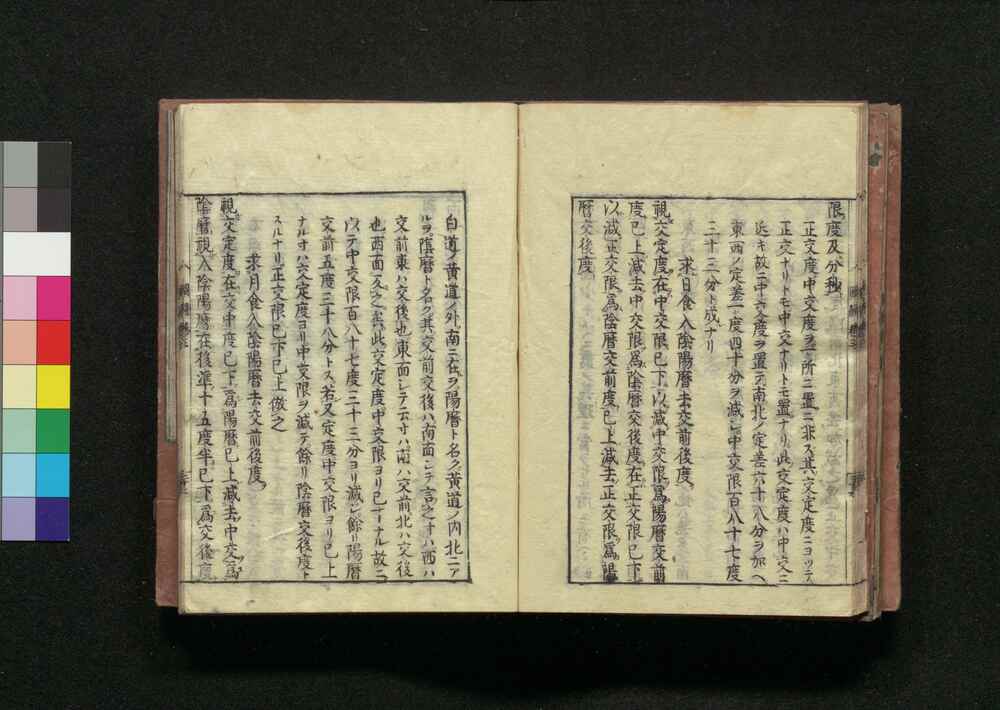 限度及分秒
正交度中交度ヲ一所ニ置ニ非ス其交定度ニヨツテ
正交ナリトモ中交ナリトモ置ナリ此交定度ハ中交ニ
近キ故ニ中交度ヲ置テ南北ノ定差六十八分ヲ加ヘ
東西ノ定差一度四十分ヲ減シ中交限百八十七度
三十三分ト成ナリ
求日食入陰陽暦去交前後度
視交定度在中交限已下以減中交限為陽暦交前
度已上減去中交限為陰暦交後度在正交限已下
以減正交限為陰暦交前度已上減去正交限為陽
暦交後度
白道ノ黄道ノ外南ニ在ヲ陽暦ト名ク黄道ノ内北ニア
ルヲ陰暦ト名ク其交前交後ハ南面シテ言之寸ハ西ハ
交前東ハ交後也東面シテ云寸ハ南ハ交前北ハ交後
也西面反之此交定度中交限ヨリ已下ナル故ニ
以テ中交限百八十七度三十三分ヨリ減シ餘リ陽暦
交前五度三十八分トス若又定度中交限ヨリ已上
ナル寸ハ交定度ヨリ中交限ヲ減テ餘リ陰暦交後度ト
スルナリ正交限已下已上倣之
求月食入陰陽暦去交前後度
視交定度在交中度已下為陽暦已上減去中交為
陰暦視入陰陽暦在後準十五度半已下為交後度